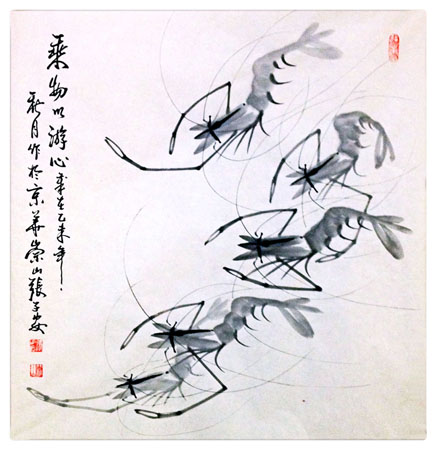 乘物以游心 歲在乙未年
秋月作於京華崇山張子安